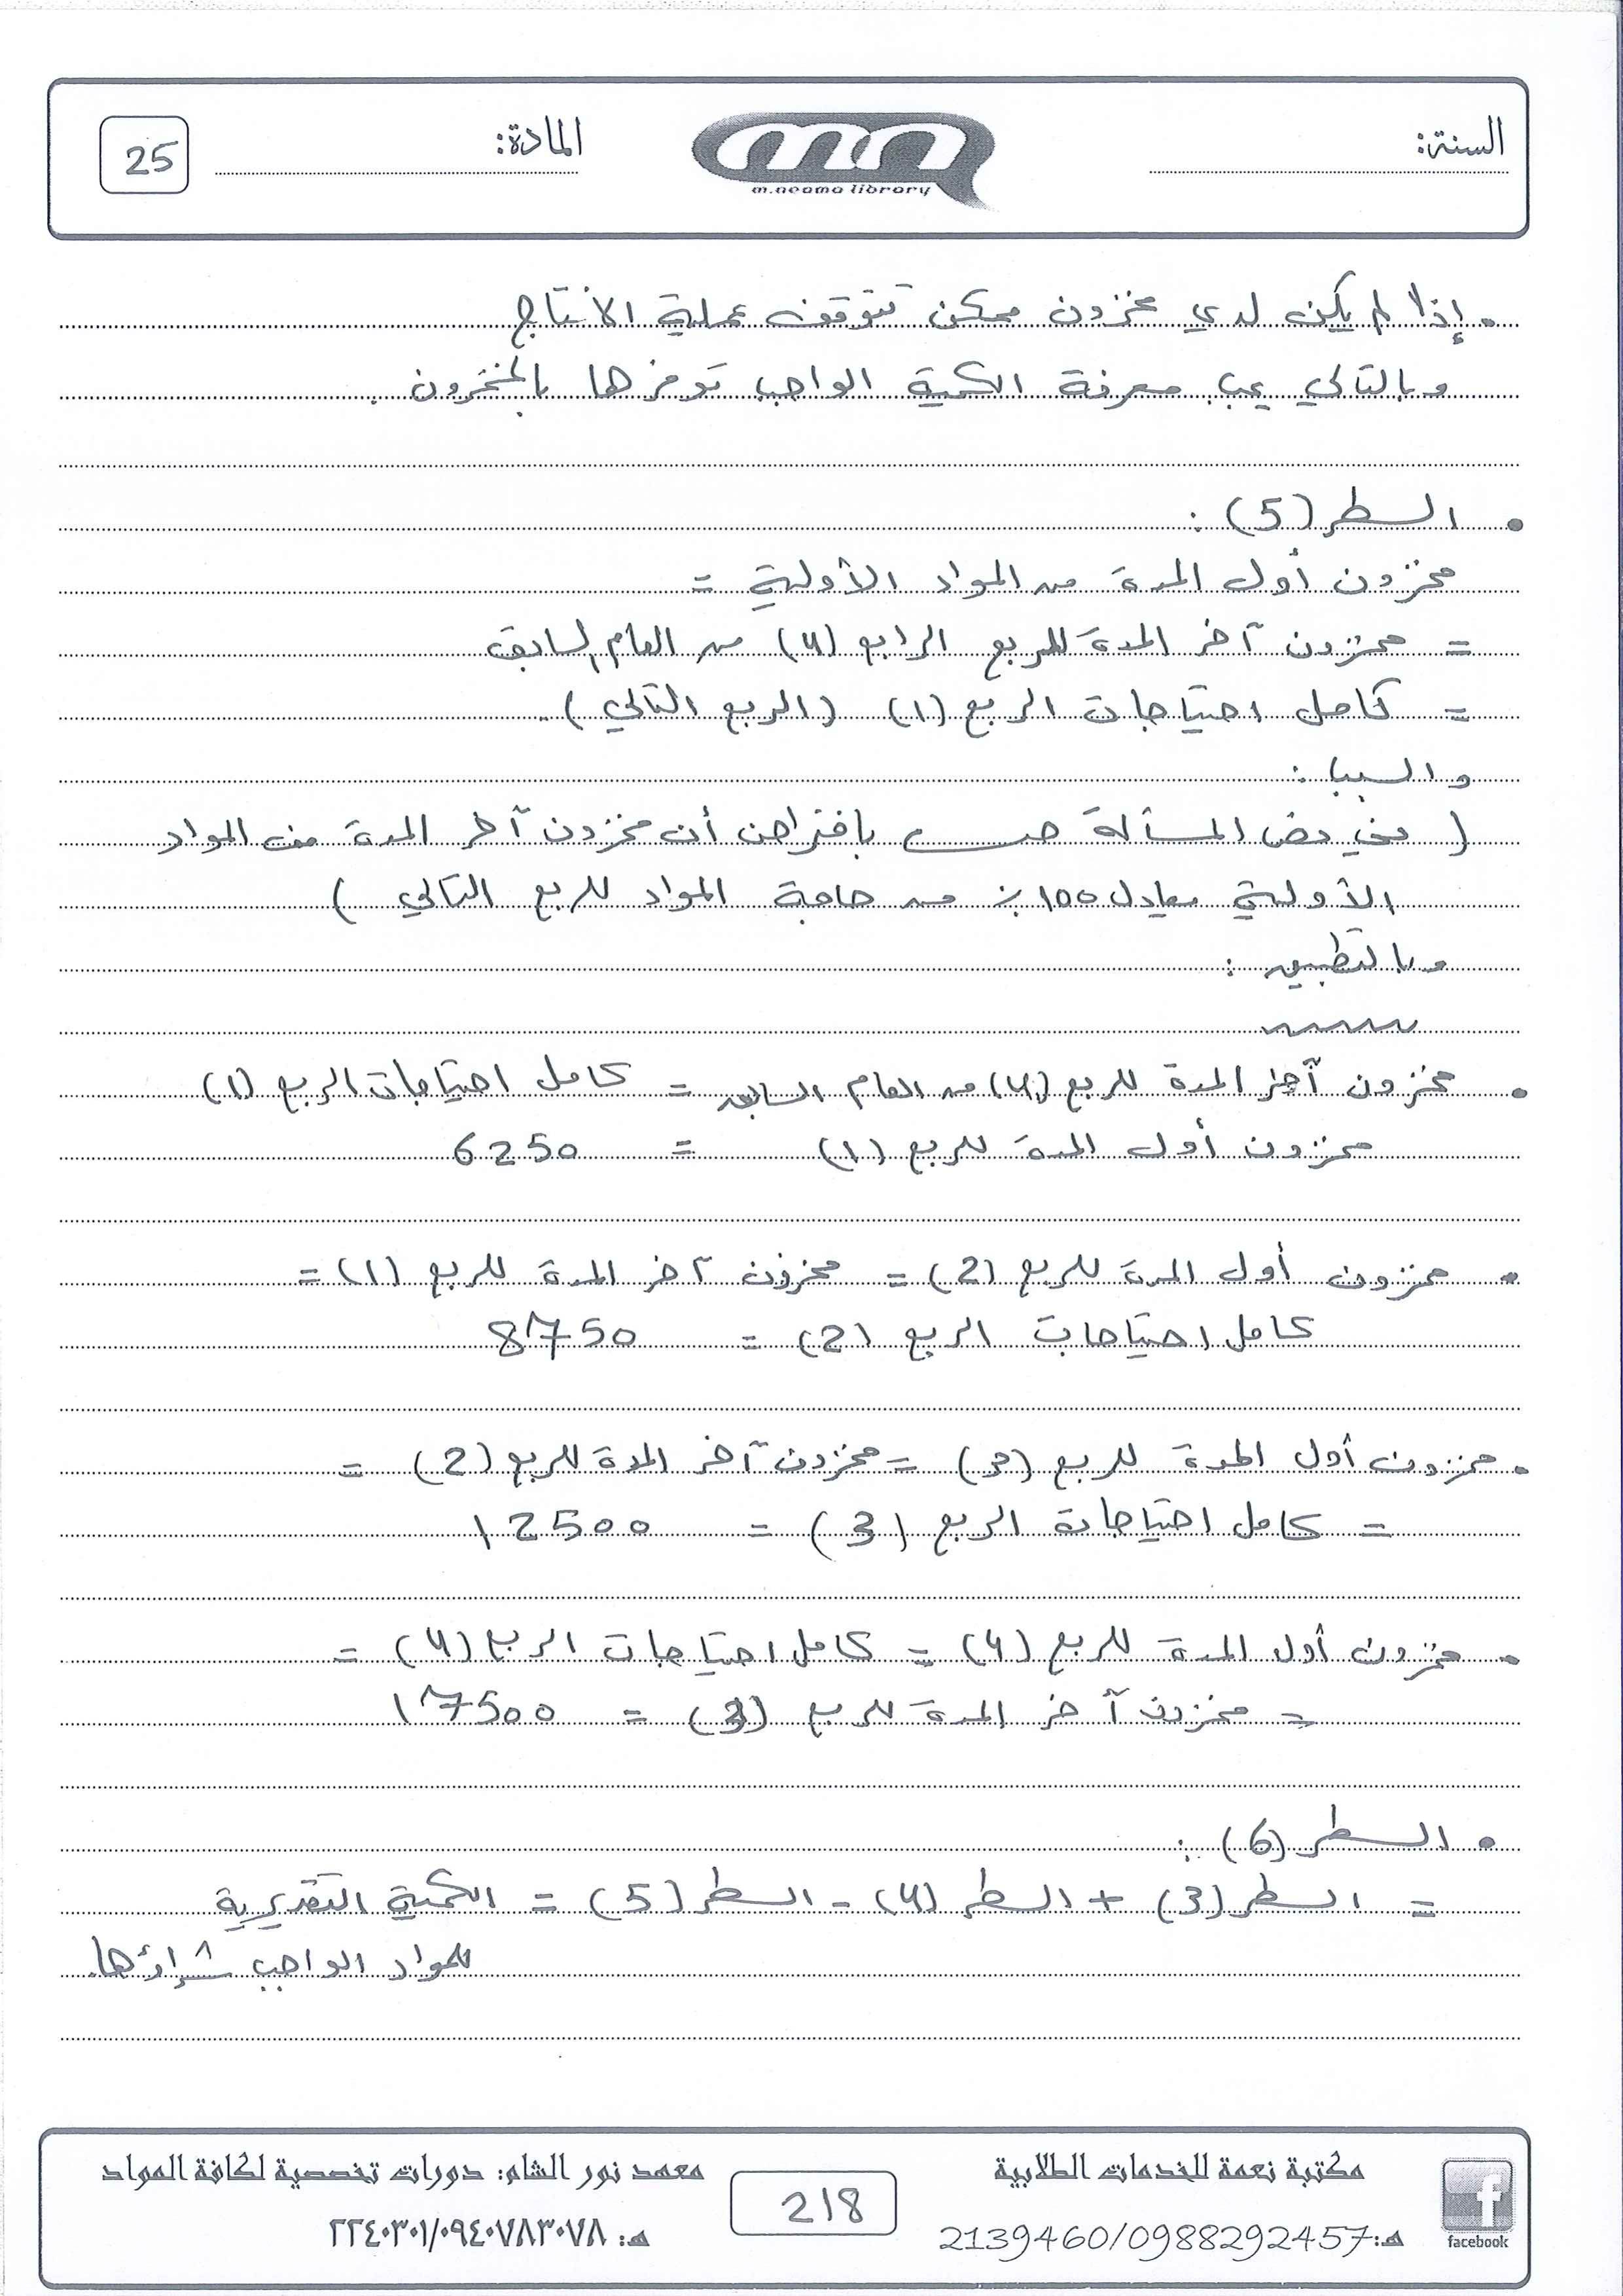 السنة:
m.neama library
المادة:
25
• إذا لم يكن لدي مخزون ممكن تتوقف عملية الانتاج
وبالتالي يجب معرفة الكمية الواجب توفرها بالمخزون.
• السطر (5):
مخزون أول المدة من المواد الأولية =
= مخزون آخر المدة للربع الرابع (4) من العام السابق
= كامل احتياجات الربع (1) (الربع التالي).
والسبب:
( في نص المسألة بافتراض أن مخزون آخر المدة من المواد
الأولية يعادل 100% من حاجة المواد للربع التالي )
وبالتطبيق:
• مخزون آخر المدة للربع (4) من العام السابق = كامل احتياجات الربع (1)
مخزون أول المدة للربع (1) = 6250
• مخزون أول المدة للربع (2) = مخزون آخر المدة للربع (1) =
كامل احتياجات الربع (2) = 8750
• مخزون أول المدة للربع (3) = مخزون آخر المدة للربع (2) =
= كامل احتياجات الربع (3) = 12500
• مخزون أول المدة للربع (4) = كامل احتياجات الربع (4) =
= مخزون آخر المدة للربع (3) = 17500
• السطر (6):
= السطر (3) + السطر (4) - السطر (5) = الكمية التقديرية
للمواد الواجب شراؤها.
مكتبة نعمة للخدمات الطلابية
هـ: 2139460/0988292457
facebook
218
معهد نور الشام: دورات تخصصية لكافة المواد
هـ: ٢٢٤٠٣٠١/٠٩٤٠٧٨٣٠٧٨